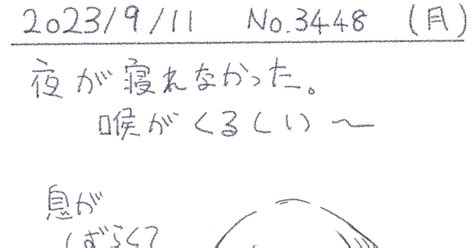 2023/9/11 No.3448 (月)
夜が寝れなかった。
喉がくるしい〜
息が
しずらくて